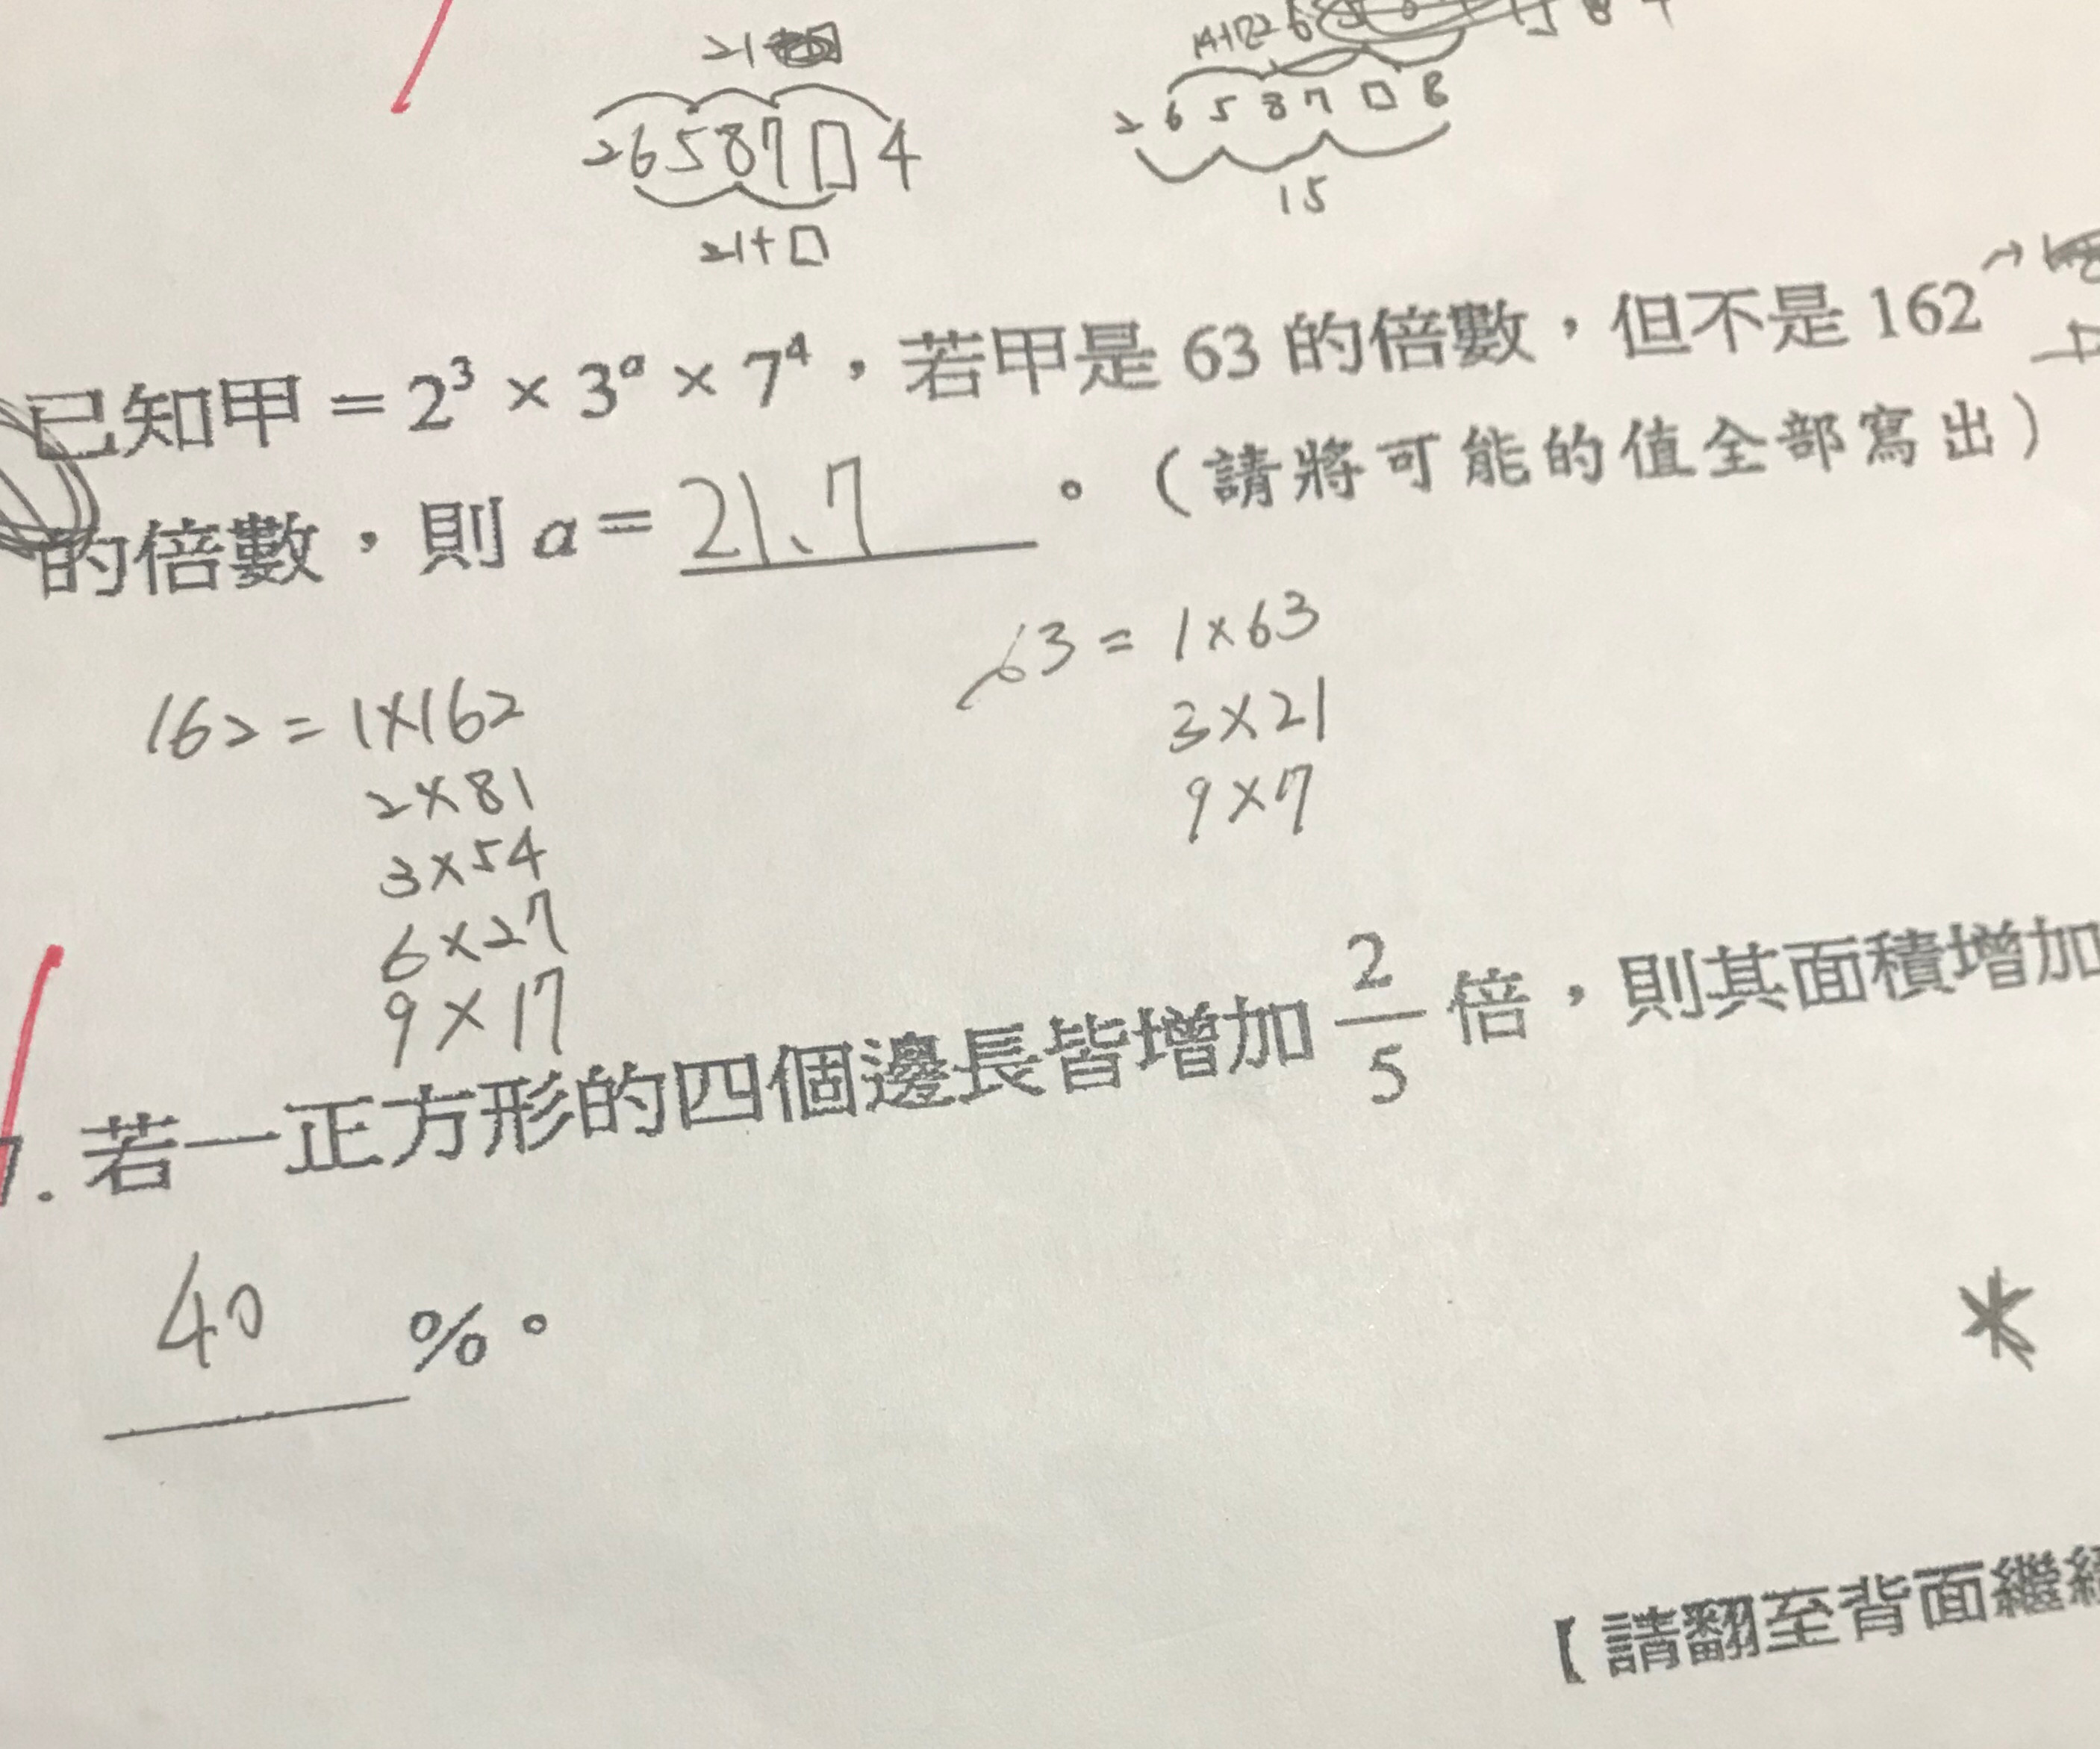 21
26587□4
21+□
26587□8
15
已知甲 = 2³ × 3ᵃ × 7⁴，若甲是 63 的倍數，但不是 162
的倍數，則 a = 21、7 。（請將可能的值全部寫出）
63 = 1×63
3×21
9×7
162 = 1×162
2×81
3×54
6×27
9×17
7. 若一正方形的四個邊長皆增加 2/5 倍，則其面積增加
40 %。
*
【請翻至背面繼續